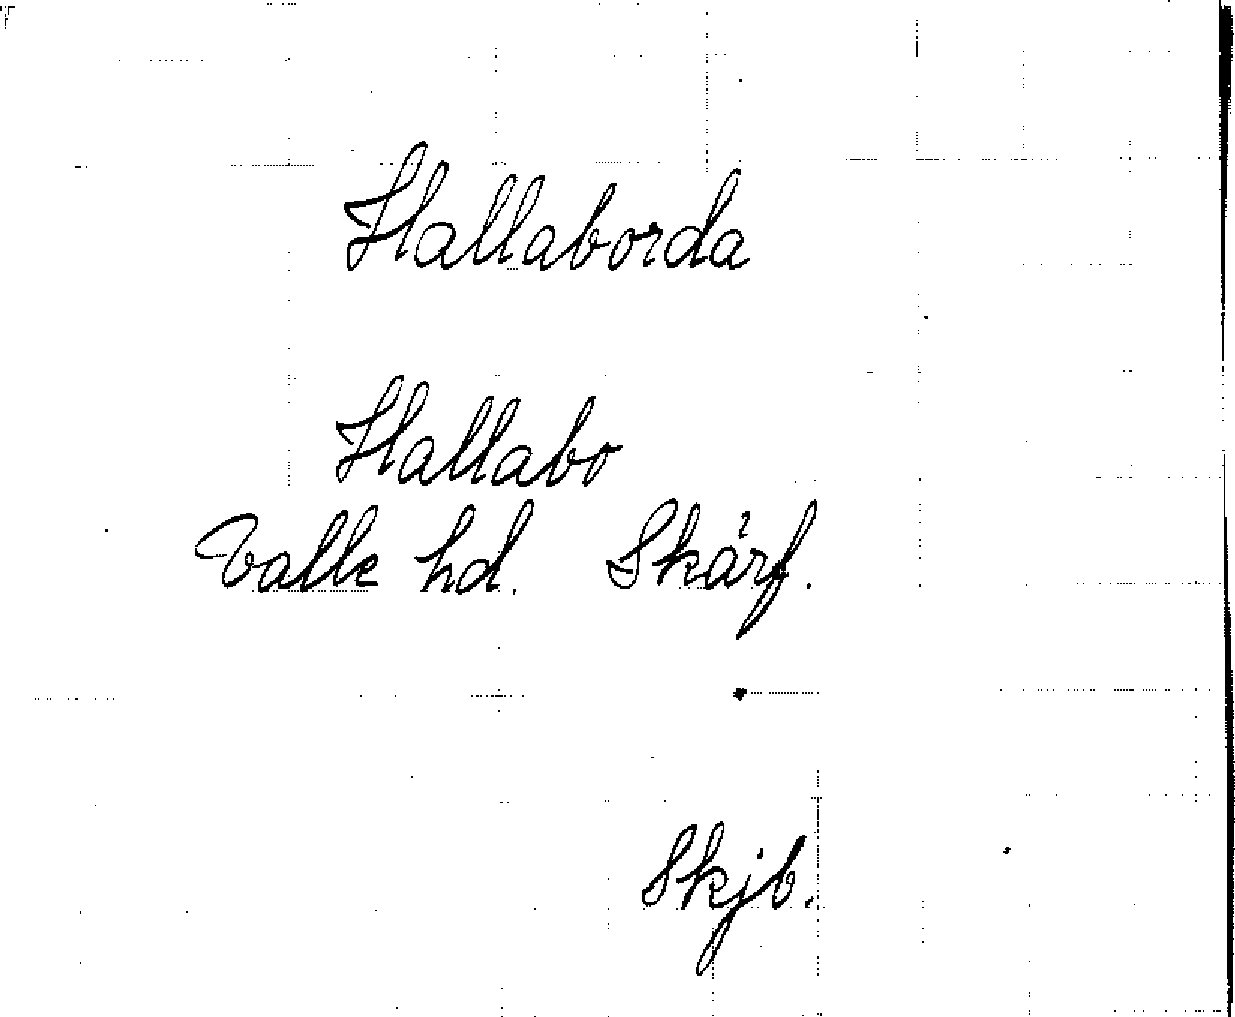 Hallaborda
Hallabo
Valle hd. Skärf.
Skjb.